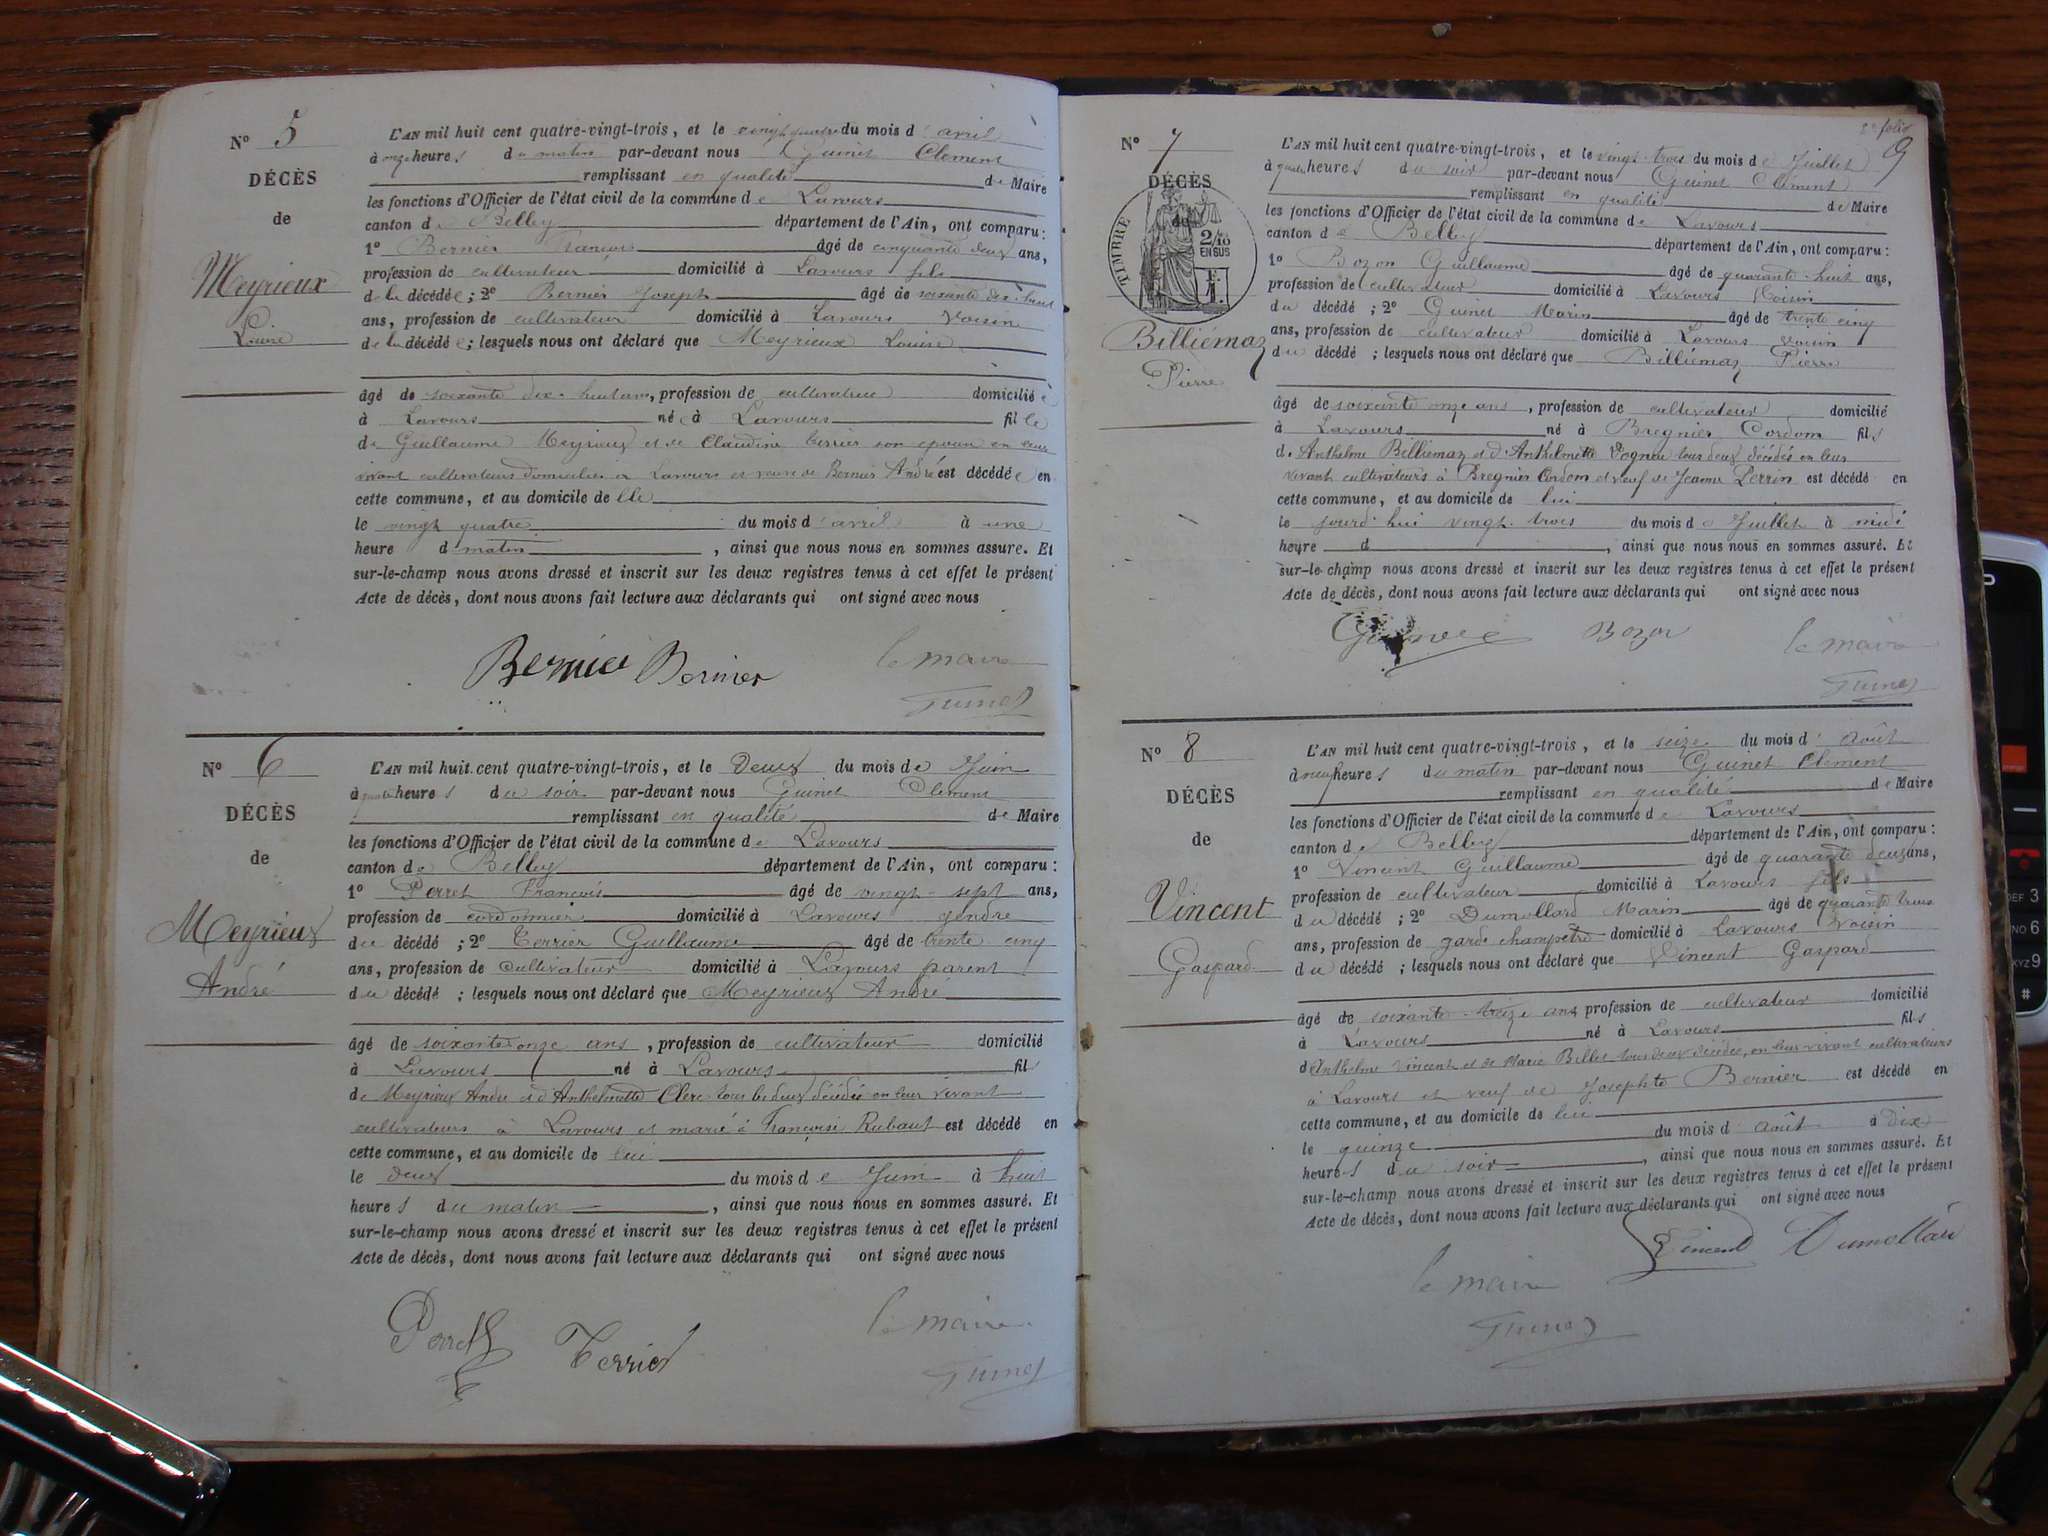 N° 5
DÉCÈS
de
Meyrieux
Louise
L'AN mil huit cent quatre-vingt-trois, et le vingt quatre du mois d'avril
à onze heures du matin par-devant nous Guinet Clément
remplissant en qualité de Maire
les fonctions d'Officier de l'état civil de la commune de Lavours
canton de Belley département de l'Ain, ont comparu :
1° Bernier François âgé de cinquante deux ans,
profession de cultivateur domicilié à Lavours fils
de la décédée ; 2° Bernier Joseph âgé de soixante dix-huit
ans, profession de cultivateur domicilié à Lavours voisin
de la décédée ; lesquels nous ont déclaré que Meyrieux Louise
âgé de soixante dix-huit ans, profession de cultivatrice domicilié
à Lavours née à Lavours fille
de Guillaume Meyrieux et de Claudine Terrier son épouse en leur
vivant cultivateurs domiciliés à Lavours et veuve de Bernier André est décédée en
cette commune, et au domicile de elle
le vingt quatre du mois d'avril à une
heure d matin, ainsi que nous nous en sommes assuré. Et
sur-le-champ nous avons dressé et inscrit sur les deux registres tenus à cet effet le présent
Acte de décès, dont nous avons fait lecture aux déclarants qui ont signé avec nous
Bernier Bernier le maire
Guinet
N° 6
DÉCÈS
de
Meyrieux
André
L'AN mil huit cent quatre-vingt-trois, et le Deux du mois de Juin
à quatre heures du soir par-devant nous Guinet Clément
remplissant en qualité de Maire
les fonctions d'Officier de l'état civil de la commune de Lavours
canton de Belley département de l'Ain, ont comparu :
1° Perret François âgé de vingt-sept ans,
profession de cordonnier domicilié à Lavours gendre
du décédé ; 2° Terrier Guillaume âgé de trente cinq
ans, profession de cultivateur domicilié à Lavours parent
du décédé ; lesquels nous ont déclaré que Meyrieux André
âgé de soixante onze ans, profession de cultivateur domicilié
à Lavours né à Lavours fil
de Meyrieux André et d'Anthelmette Clerc tous les deux décédés en leur vivant
cultivateurs à Lavours et marié à Françoise Rubaut est décédé en
cette commune, et au domicile de lui
le deux du mois de Juin à huit
heures du matin, ainsi que nous nous en sommes assuré. Et
sur-le-champ nous avons dressé et inscrit sur les deux registres tenus à cet effet le présent
Acte de décès, dont nous avons fait lecture aux déclarants qui ont signé avec nous
Perret Terrier le maire
Guinet
2e folio
9
N° 7
DÉCÈS
de
TIMBRE
2/10
EN SUS
Billiémaz
Pierre
L'AN mil huit cent quatre-vingt-trois, et le vingt-trois du mois de Juillet
à quatre heures du soir par-devant nous Guinet Clément
remplissant en qualité de Maire
les fonctions d'Officier de l'état civil de la commune de Lavours
canton de Belley département de l'Ain, ont comparu :
1° Bozon Guillaume âgé de quarante-huit ans,
profession de cultivateur domicilié à Lavours Voisin
du décédé ; 2° Guinet Marin âgé de trente cinq
ans, profession de cultivateur domicilié à Lavours voisin
du décédé ; lesquels nous ont déclaré que Billiémaz Pierre
âgé de soixante onze ans, profession de cultivateur domicilié
à Lavours né à Bregnier Cordon fils
de Anthelme Billiémaz et d'Anthelmette Vognou tous deux décédés en leur
vivant cultivateurs à Bregnier Cordon et veuf de Jeanne Perrin est décédé en
cette commune, et au domicile de lui
le jourd'hui vingt-trois du mois de Juillet à midi
heure d, ainsi que nous nous en sommes assuré. Et
sur-le-champ nous avons dressé et inscrit sur les deux registres tenus à cet effet le présent
Acte de décès, dont nous avons fait lecture aux déclarants qui ont signé avec nous
Guinet Bozon le maire
Guinet
N° 8
DÉCÈS
de
Vincent
Gaspard
L'AN mil huit cent quatre-vingt-trois, et le seize du mois d'août
à neuf heures du matin par-devant nous Guinet Clément
remplissant en qualité de Maire
les fonctions d'Officier de l'état civil de la commune de Lavours
canton de Belley département de l'Ain, ont comparu :
1° Vincent Guillaume âgé de quarante deux ans,
profession de cultivateur domicilié à Lavours fils
du décédé ; 2° Dumollard Marin âgé de quarante trois
ans, profession de garde champêtre domicilié à Lavours Voisin
du décédé ; lesquels nous ont déclaré que Vincent Gaspard
âgé de soixante-treize ans profession de cultivateur domicilié
à Lavours né à Lavours fils
d'Anthelme Vincent et de Marie Billet tous deux décédés, en leur vivant cultivateurs
à Lavours et veuf de Josephte Bernier est décédé en
cette commune, et au domicile de lui
le quinze du mois d'août à dix
heures du soir, ainsi que nous nous en sommes assuré. Et
sur-le-champ nous avons dressé et inscrit sur les deux registres tenus à cet effet le présent
Acte de décès, dont nous avons fait lecture aux déclarants qui ont signé avec nous
Vincent Dumollard
le maire
Guinet
DEF 3
NO 6
XYZ 9
#